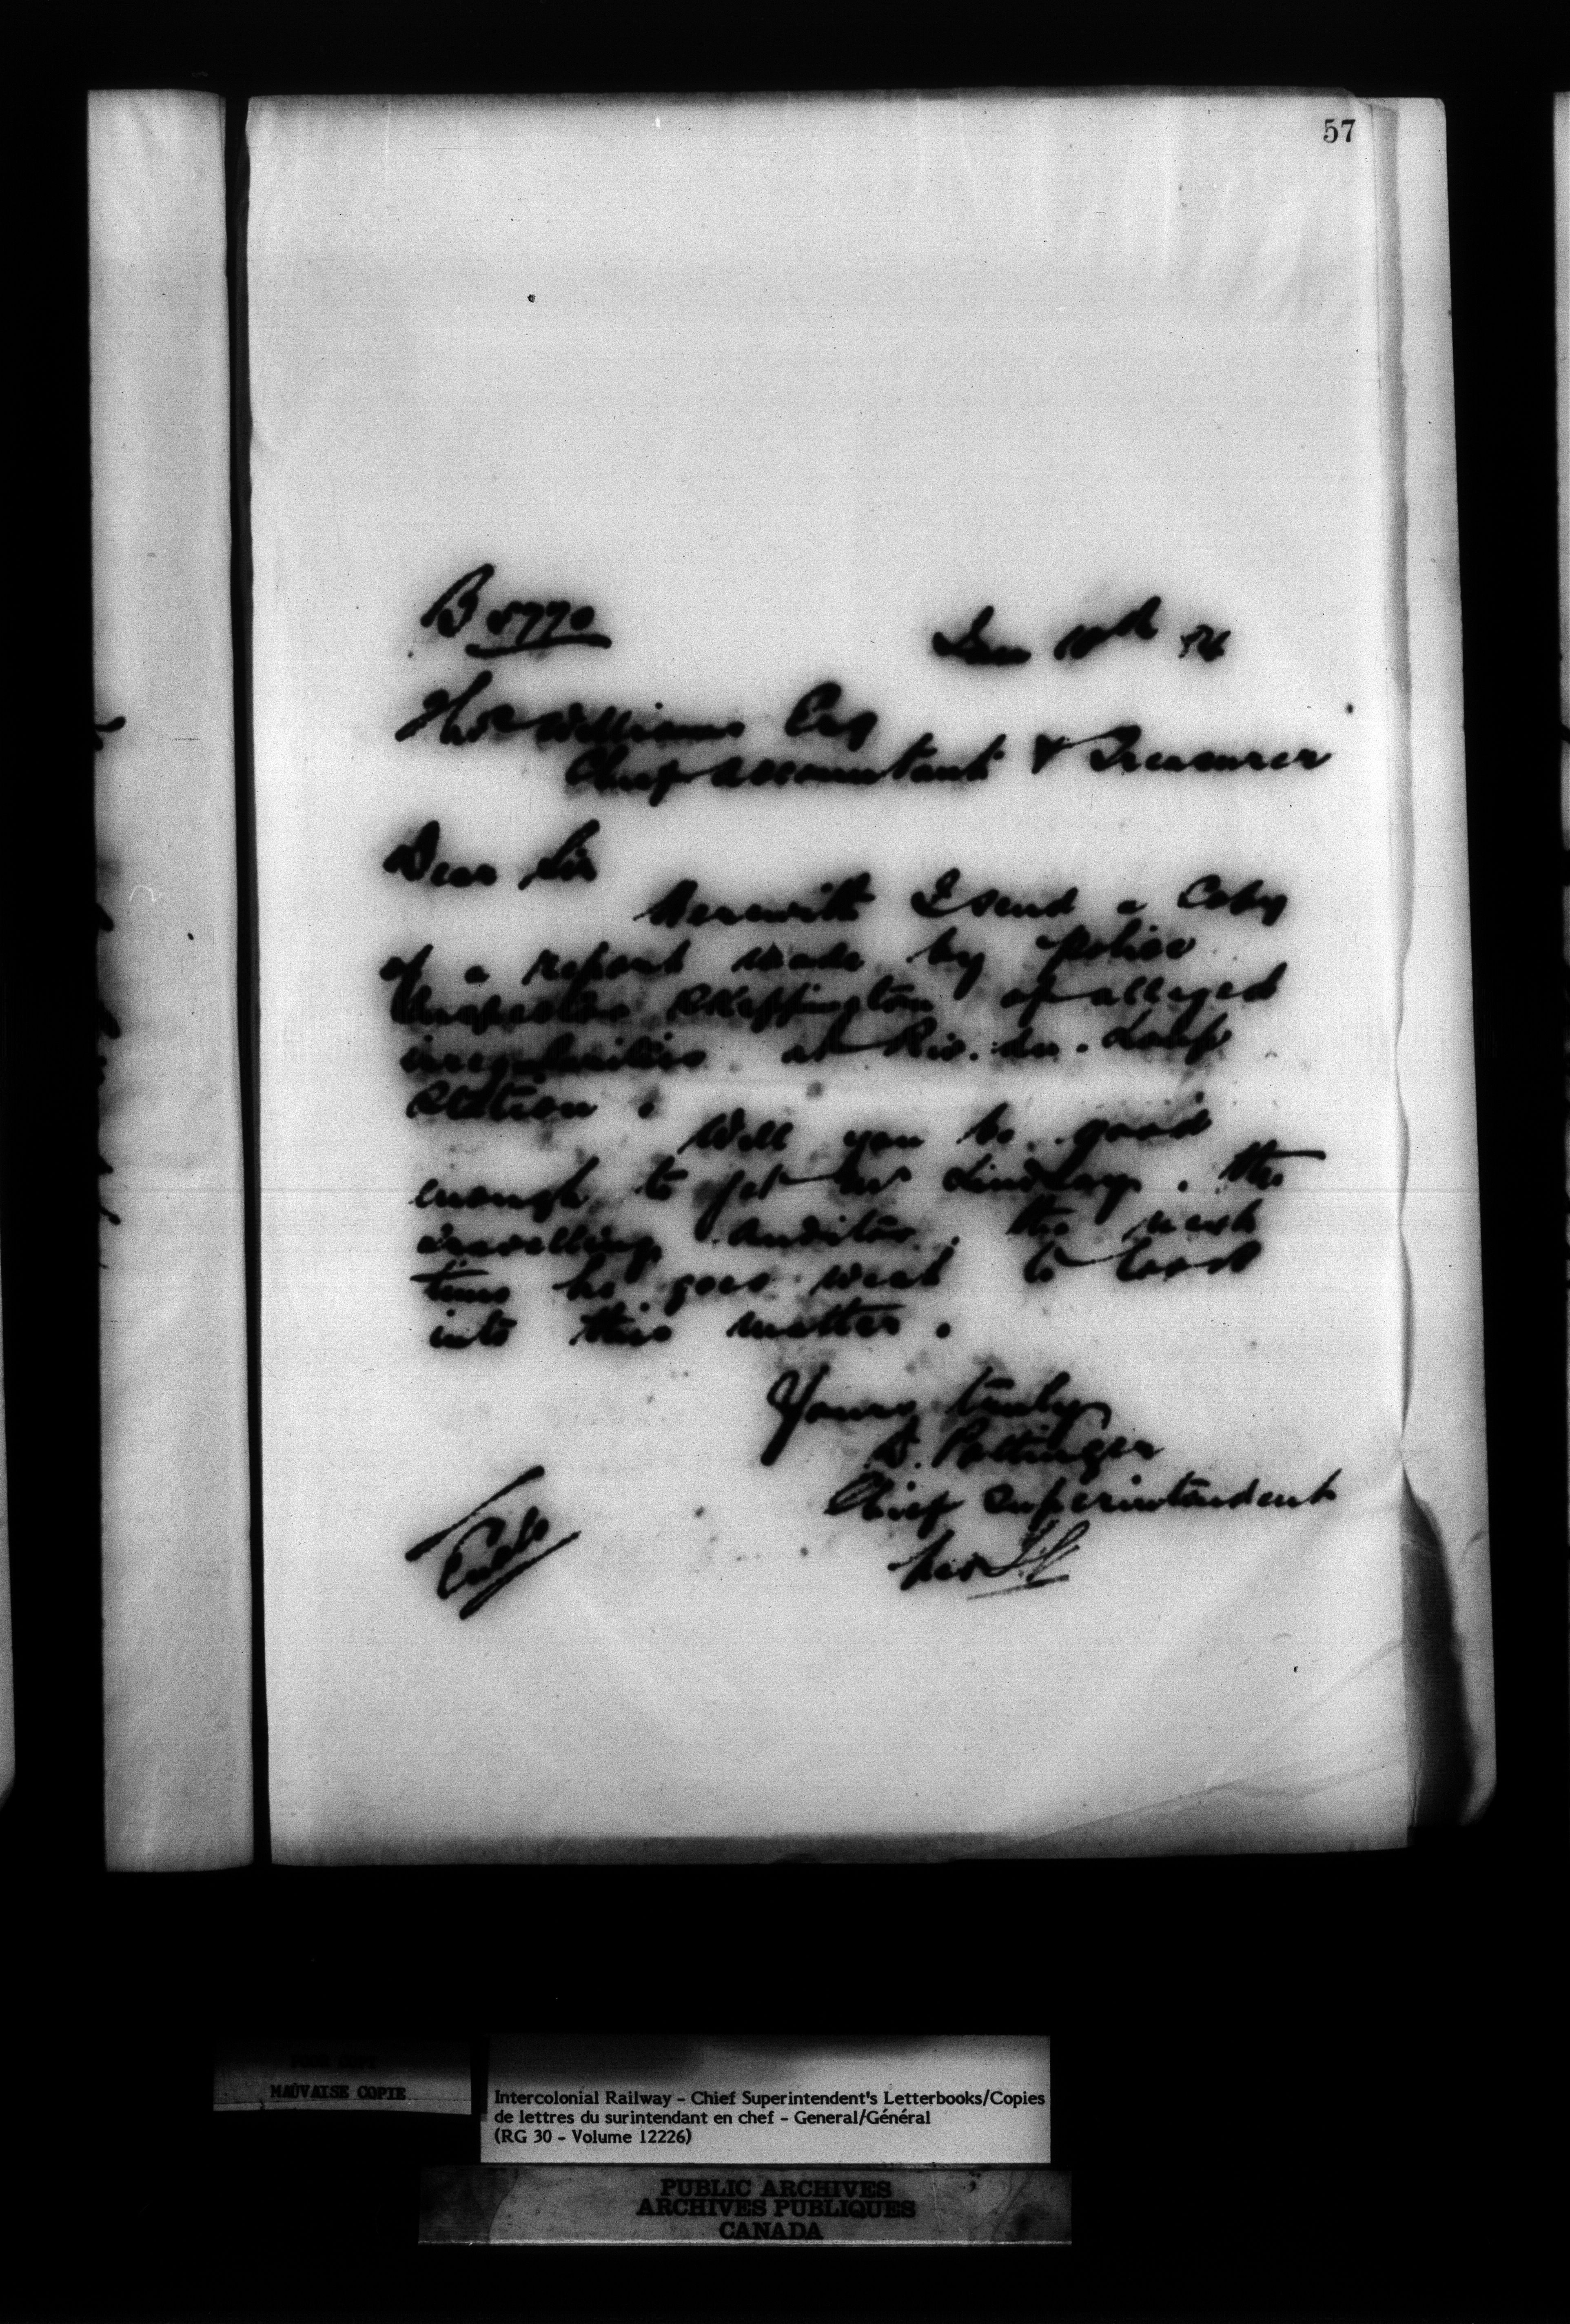 57
B 5770
Jan 10th 84
Thos Williams Esq
Chief Accountant & Treasurer
Dear Sir
Herewith I send a Copy
of a report made by Police
Inspector Skeffington of alleged
irregularities at Riv. du. Loup
Station.
Will you be good
enough to get Mr Lindsay. the
travelling Auditor. the next
time he goes west to look
into this matter.
Yours truly
D. Pottinger
Chief Superintendent
Encls
MAUVAISE COPIE
Intercolonial Railway - Chief Superintendent's Letterbooks/Copies
de lettres du surintendant en chef - General/Général
(RG 30 - Volume 12226)
PUBLIC ARCHIVES
ARCHIVES PUBLIQUES
CANADA